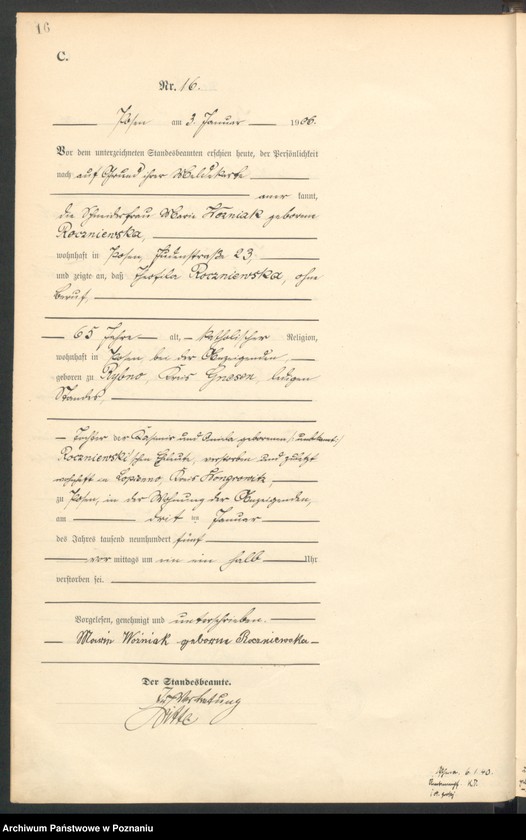 16
C.
Nr. 16.
Posen am 3. Januar 1906.
Vor dem unterzeichneten Standesbeamten erschien heute, der Persönlichkeit
nach auf Grund ihrer Meldekarte
aner kannt,
die Schneiderfrau Marie Woźniak geborene
Roczniewska,
wohnhaft in Posen, Judenstraße 23,
und zeigte an, daß Theofila Roczniewska, ohne
Beruf,
65 Jahre alt, katholischer Religion,
wohnhaft in Posen, bei der Anzeigenden,
geboren zu Rybno, Kreis Gnesen, ledigen
Standes,
Tochter der Kasimir und geborenen (unbekannt)
Roczniewski'schen Eheleute, verstorben und zuletzt
wohnhaft in Lopienno, Kreis Wongrowitz,
zu Posen, in der Wohnung der Anzeigenden,
am dritten Januar
des Jahres tausend neunhundert fünf
vor mittags um ein ein halb Uhr
verstorben sei.
Vorgelesen, genehmigt und unterschrieben.
Marie Woźniak geborene Roczniewska
Der Standesbeamte.
In Vertretung
6.1.40.
Archiwum Państwowe w Poznaniu